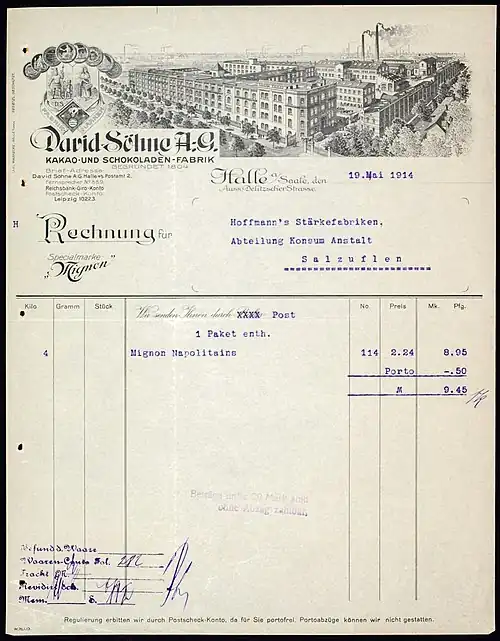 David Söhne A.-G.
KAKAO-UND SCHOKOLADEN-FABRIK
GEGRÜNDET 1804
Brief-Adresse:
David Söhne A.G. Halle a/S. Postamt 2.
Reichsbank-Giro-Konto
Postscheck-Konto:
Leipzig 10223.
Halle a/Saale, den 19.Mai 1914
Äuss. Delitzscherstrasse.
H
Rechnung für
Hoffmann's Stärkefabriken,
Abteilung Konsum Anstalt
Salzuflen
Specialmarke
„Mignon”
Kilo Gramm Stück No. Preis Mk. Pfg.
Wir senden Ihnen durch xxxx Post
1 Paket enth.
4 Mignon Napolitains 114 2.24 8.95
Porto -.50
M 9.45
Beträge unter 20 Mark sind
ohne Abzug zahlbar.
Befund d. Waare
Waaren-Conto Fol. 212
Fracht M.
Revidirt d. ch.
Mem. S.
Regulierung erbitten wir durch Postscheck-Konto, da für Sie portofrei. Portoabzüge können wir nicht gestatten.